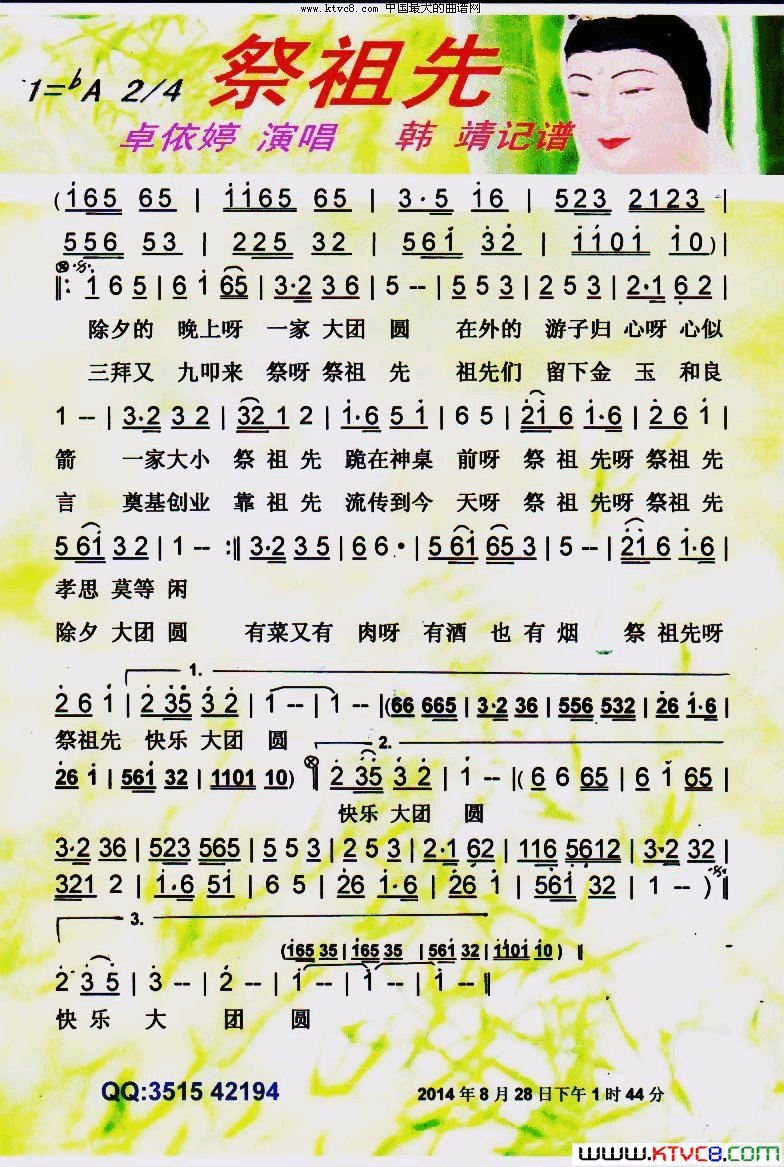 www.ktvc8.com 中国最大的曲谱网
祭祖先
1=♭A 2/4
卓依婷 演唱 韩 靖记谱
(165 65 | 1165 65 | 3·5 16 | 523 2123 |
556 53 | 225 32 | 561 32 | 1101 10)|
‖: 1 6 5 | 6 1 65 | 3·2 3 6 | 5 -- | 5 5 3 | 2 5 3 | 2·1 6 2 |
除夕的 晚上呀 一家 大团 圆 在外的 游子归 心呀 心似
三拜又 九叩来 祭呀 祭祖 先 祖先们 留下金 玉 和良
1 -- | 3·2 3 2 | 32 1 2 | 1·6 5 1 | 6 5 | 21 6 1·6 | 2 6 1 |
箭 一家大小 祭 祖 先 跪在神桌 前呀 祭 祖 先呀 祭祖 先
言 奠基创业 靠 祖 先 流传到今 天呀 祭 祖 先呀 祭祖 先
5 61 3 2 | 1 -- :‖ 3·2 3 5 | 6 6 · | 5 61 65 3 | 5 -- | 21 6 1·6 |
孝思 莫等 闲
除夕 大团 圆 有菜又有 肉呀 有酒 也 有 烟 祭 祖先呀
1.
2 6 1 | 2 35 3 2 | 1 -- | 1 -- |(66 665 | 3·2 36 | 556 532 | 26 1·6 |
祭祖先 快乐 大团 圆
2.
26 1 | 561 32 | 1101 10) ‖ 2 35 3 2 | 1 -- |( 6 6 65 | 6 1 65 |
快乐 大团 圆
3·2 36 | 523 565 | 5 5 3 | 2 5 3 | 2·1 62 | 116 5612 | 3·2 32 |
321 2 | 1·6 51 | 6 5 | 26 1·6 | 26 1 | 561 32 | 1 -- ) ‖
3.
(165 35 | 165 35 | 561 32 | 1101 10) ‖
2 3 5 | 3 -- | 2 -- | 1 -- | 1 -- | 1 -- ‖
快 乐 大 团 圆
QQ:3515 42194 2014 年 8 月 28 日下午 1 时 44 分
www.KTVC8.com